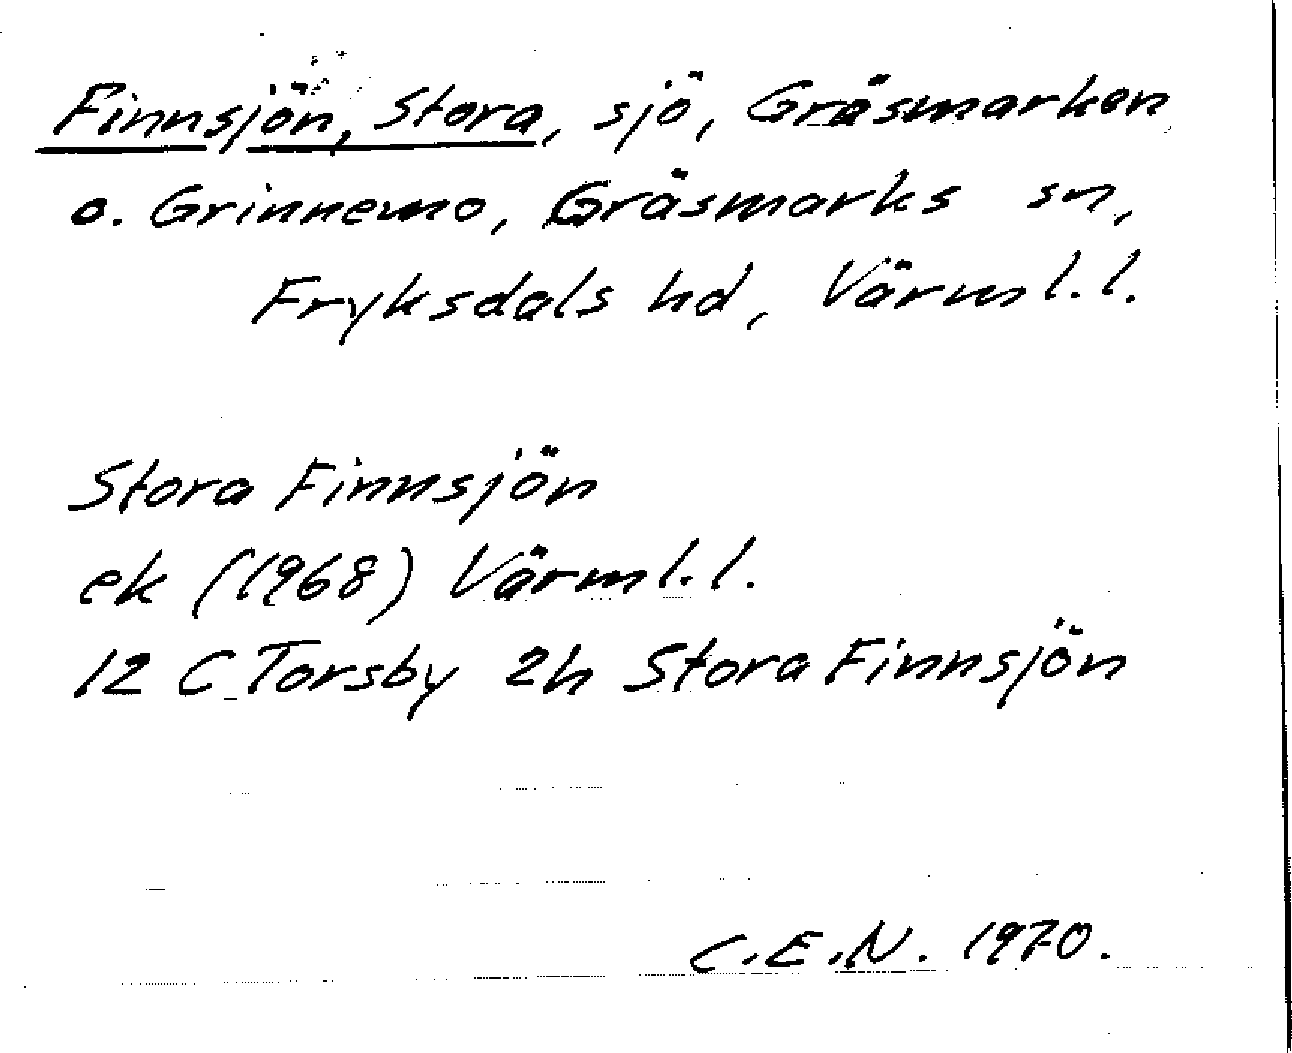 Finnsjön, Stora, sjö, Gräsmarken
o. Grinnemo, Gräsmarks sn,
Fryksdals hd, Värml. l.
Stora Finnsjön
ek (1968) Värml. l.
12 C Torsby 2h Stora Finnsjön
C.E.N. 1970.